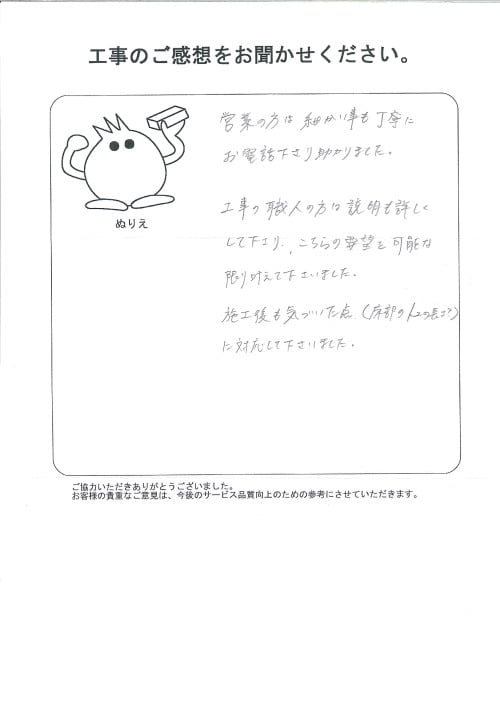 工事のご感想をお聞かせください。
営業の方は細かい事も丁寧に
お電話下さり助かりました。
ぬりえ
工事の職人の方は説明も詳しく
して下さり、こちらの要望を可能な
限り叶えて下さいました。
施工後も気づいた点(床部の
に対応して下さいました。
ご協力いただきありがとうございました。
お客様の貴重なご意見は、今後のサービス品質向上のための参考にさせていただきます。